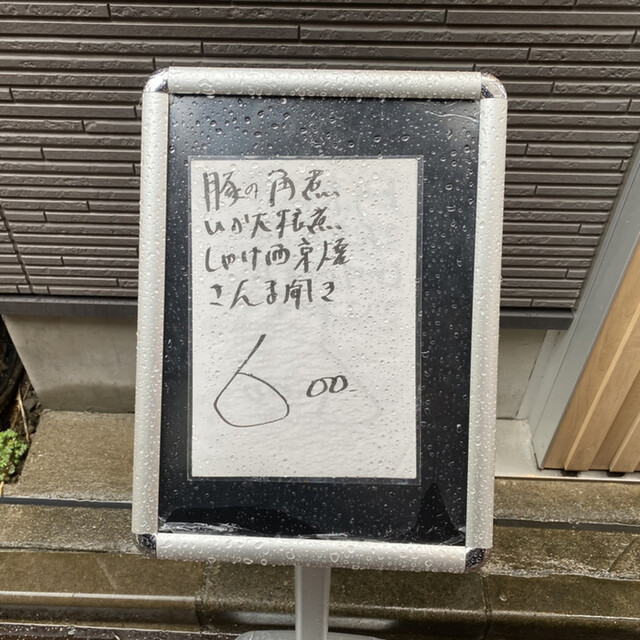 豚の角煮
いか大根煮
しゃけ西京焼
さんま開き
600